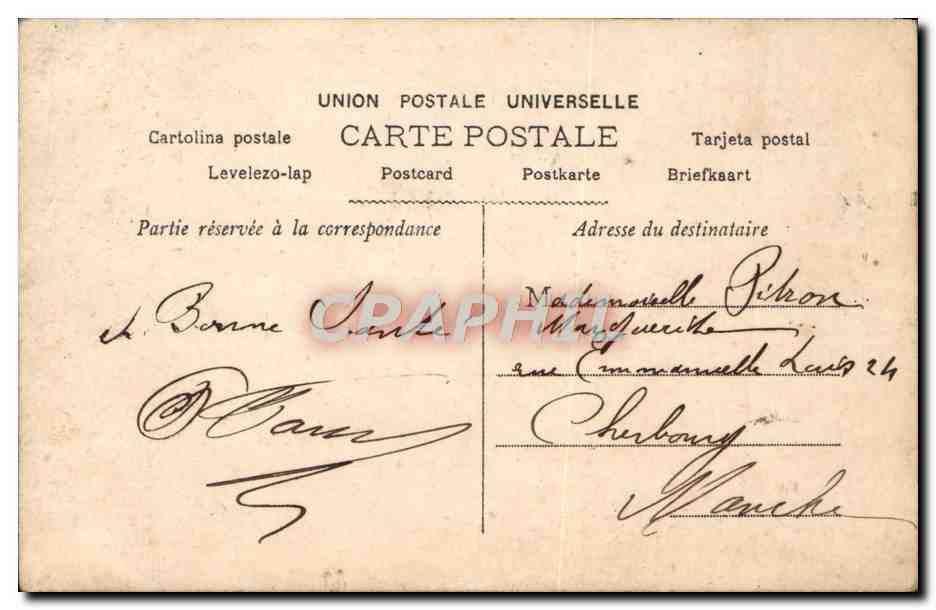 UNION POSTALE UNIVERSELLE
Cartolina postale CARTE POSTALE Tarjeta postal
Levelezo-lap Postcard Postkarte Briefkaart
Partie réservée à la correspondance
et Bonne Santé
Adresse du destinataire
Mademoiselle Pitron
Marguerite
rue Emmanuelle Liais 24
Cherbourg
Manche
CPAPHIL